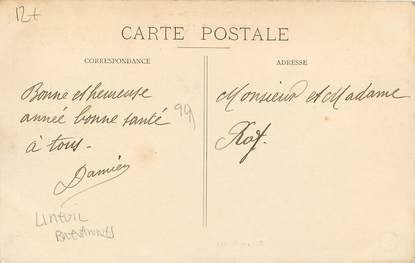 12+
CARTE POSTALE
CORRESPONDANCE
ADRESSE
Bonne et heureuse
année bonne santé
à tous.
Damien
99
Monsieur et Madame
LIMEUIL
BREVANNES